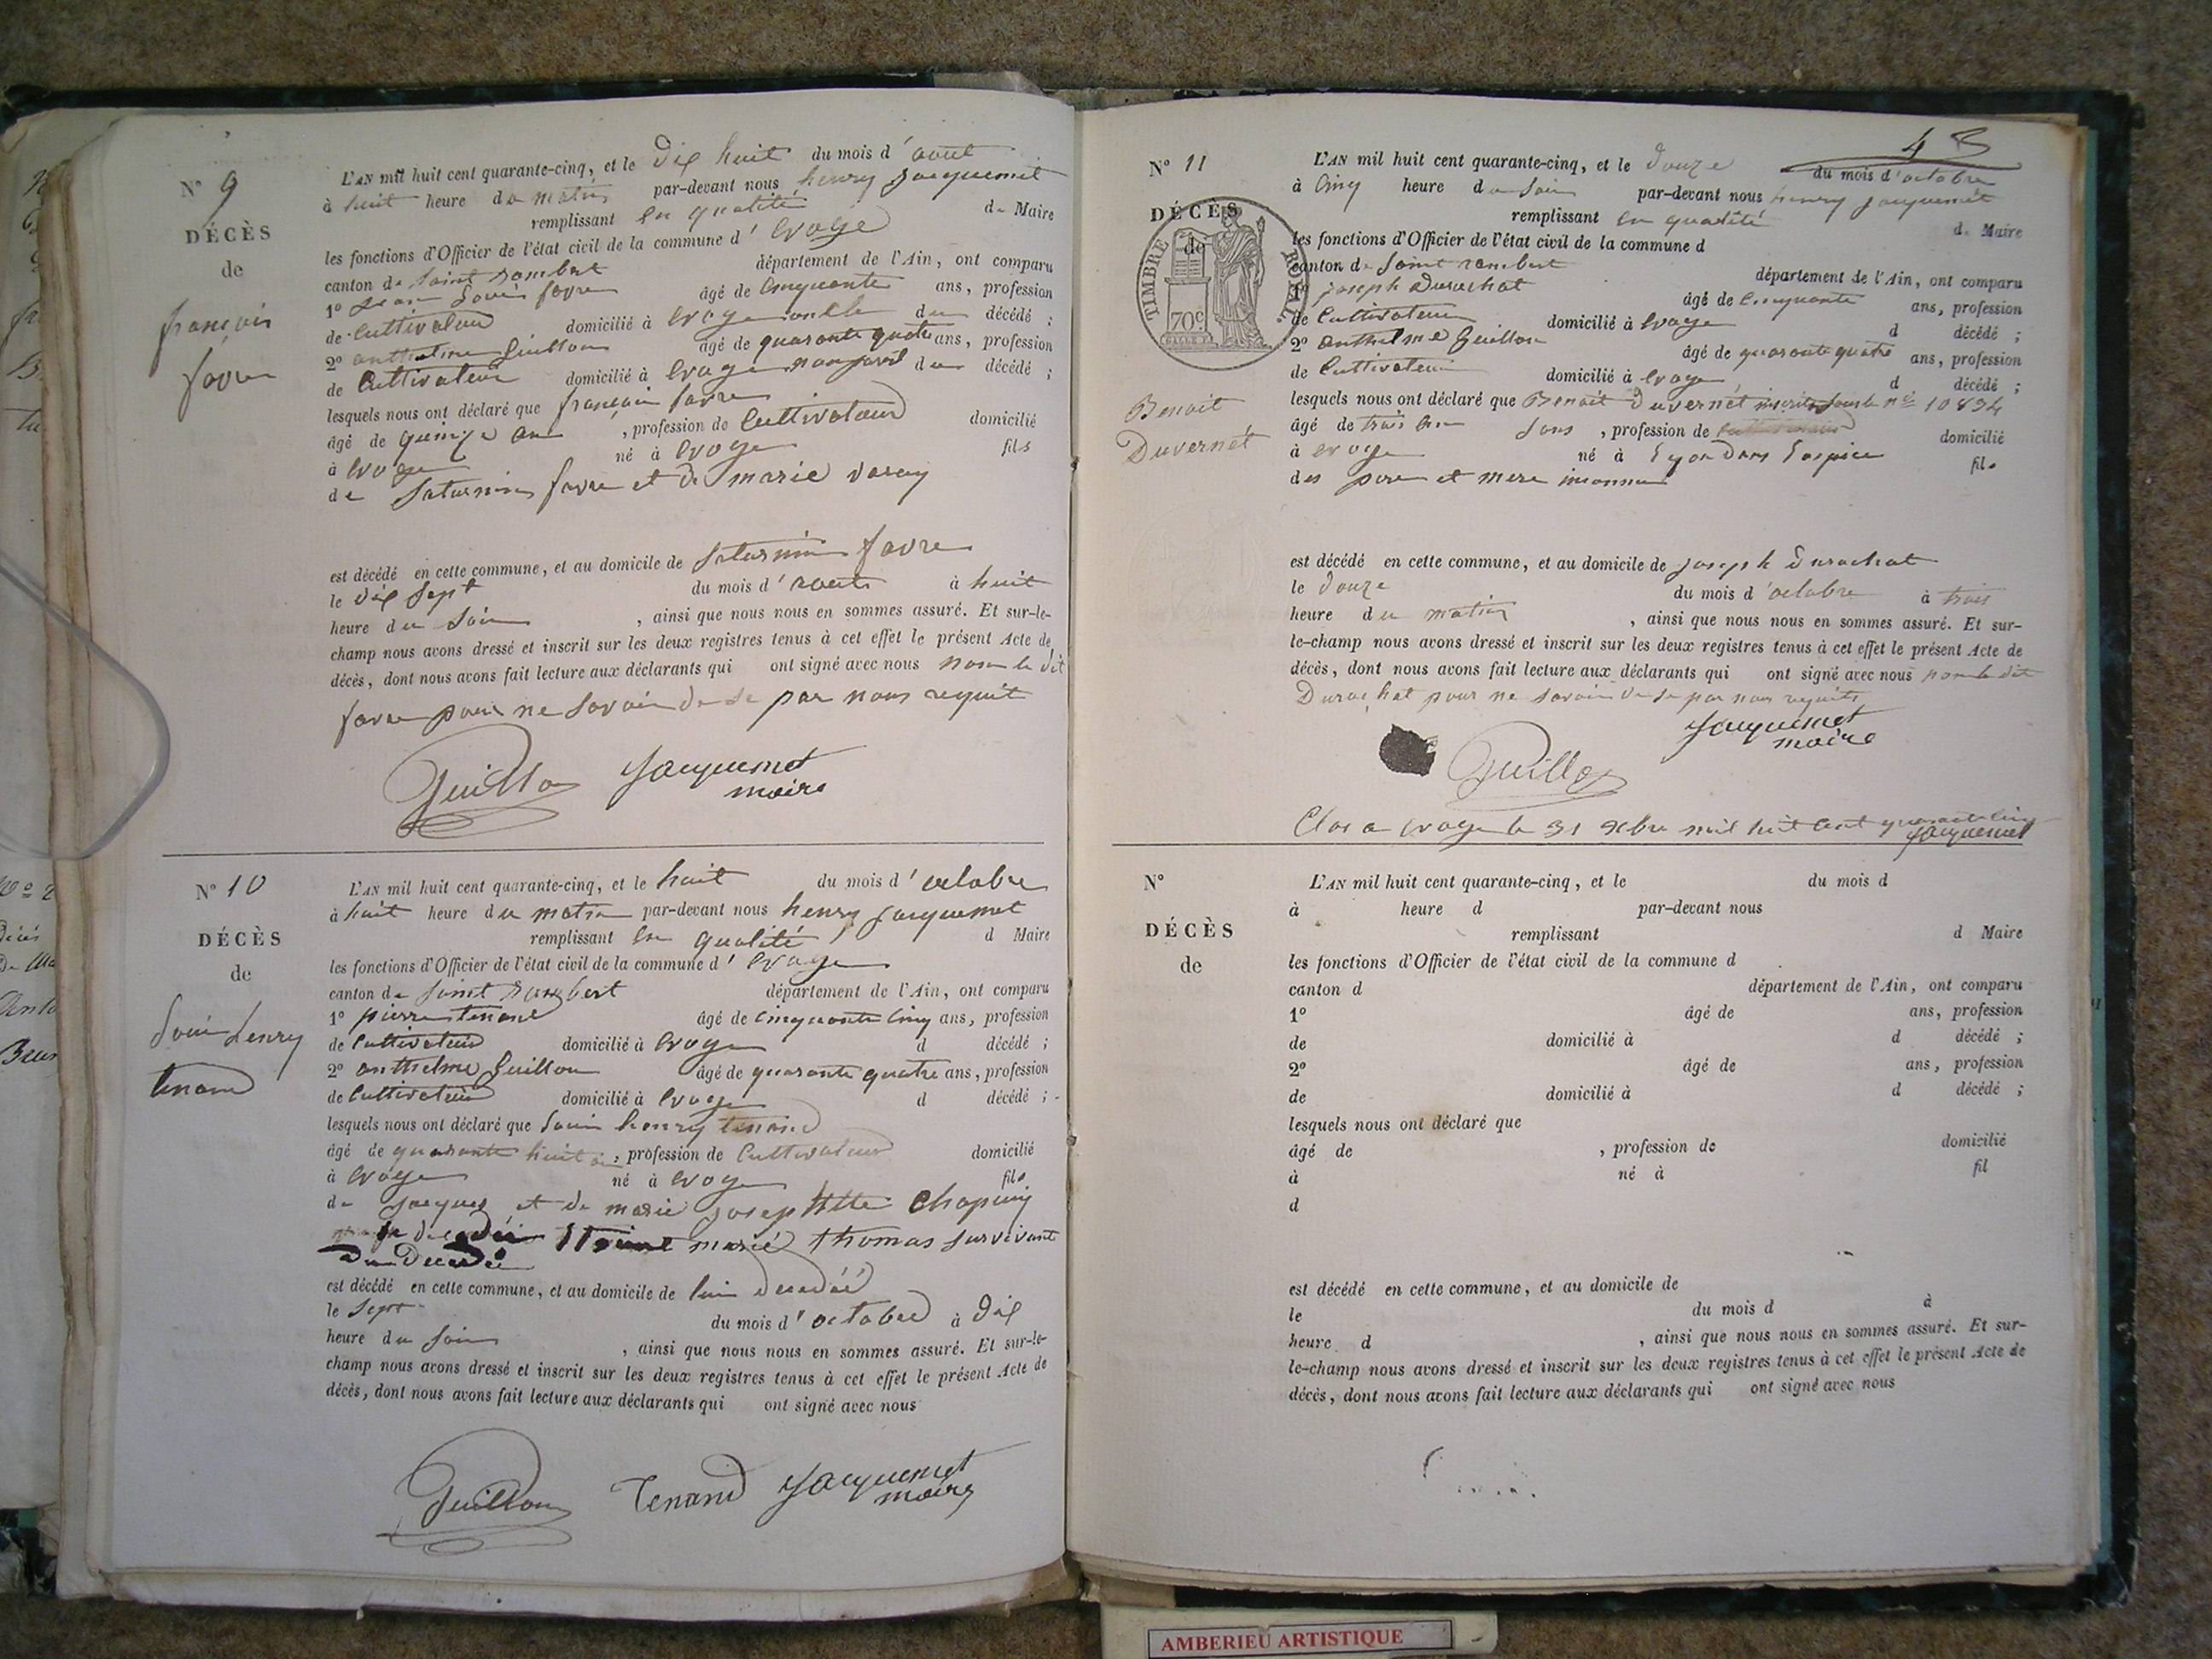 N° 9
DÉCÈS
de
françois
favre
L'AN mil huit cent quarante-cinq, et le dix huit du mois d'aout
à huit heure du matin par-devant nous henry Jacquemet
remplissant en qualité de Maire
les fonctions d'Officier de l'état civil de la commune d'Evoge
canton de Saint rambert département de l'Ain, ont comparu
1° Jean Louis favre âgé de cinquante ans, profession
de Cultivateur domicilié à Evoge oncle du décédé ;
2° anthelme Guillon âgé de quarante quatre ans, profession
de Cultivateur domicilié à Evoge non parent du décédé ;
lesquels nous ont déclaré que françois favre
âgé de quinze ans , profession de Cultivateur domicilié
à Evoge né à Evoge fils
de Saturnin favre et de marie varey
est décédé en cette commune, et au domicile de Saturnin favre
le dix Sept du mois d'aout à huit
heure du Soir , ainsi que nous nous en sommes assuré. Et sur-le-
champ nous avons dressé et inscrit sur les deux registres tenus à cet effet le présent Acte de
décès, dont nous avons fait lecture aux déclarants qui ont signé avec nous non le dit
favre pour ne Savoir de ce par nous requit
Guillon Jacquemet
maire
N° 10
DÉCÈS
de
Louis henry
tenand
L'AN mil huit cent quarante-cinq, et le huit du mois d'octobre
à huit heure du matin par-devant nous henry Jacquemet
remplissant en qualité d Maire
les fonctions d'Officier de l'état civil de la commune d'Evoge
canton de Saint Rambert département de l'Ain, ont comparu
1° pierre tenand âgé de cinquante cinq ans, profession
de Cultivateur domicilié à Evoge d décédé ;
2° anthelme Guillon âgé de quarante quatre ans, profession
de Cultivateur domicilié à Evoge d décédé ;
lesquels nous ont déclaré que Louis henry tenand
âgé de quarante huit ans , profession de Cultivateur domicilié
à Evoge né à Evoge fils
de Jacques et de marie Josephtte Chapuy
marié thomas survivant
du Decedé
est décédé en cette commune, et au domicile de lui decedé
le Sept du mois d'octobre à dix
heure du Soir , ainsi que nous nous en sommes assuré. Et sur-le-
champ nous avons dressé et inscrit sur les deux registres tenus à cet effet le présent Acte de
décès, dont nous avons fait lecture aux déclarants qui ont signé avec nous
Guillon Tenand Jacquemet
maire
48
N° 11
DÉCÈS
de
TIMBRE ROYAL
70c
Benoit
Duvernet
L'AN mil huit cent quarante-cinq, et le douze du mois d'octobre
à cinq heure du Soir par-devant nous henry Jacquemet
remplissant en qualité de Maire
les fonctions d'Officier de l'état civil de la commune d
canton de Saint rambert département de l'Ain, ont comparu
1° joseph Durochat âgé de Cinquante ans, profession
de Cultivateur domicilié à Evoge d décédé ;
2° anthelme Guillon âgé de quarante quatre ans, profession
de Cultivateur domicilié à Evoge d décédé ;
lesquels nous ont déclaré que Benoit Duvernet inscrit sous le n° 10834
âgé de trois ans Sans , profession de domicilié
à Evoge né à Lyon dans Lospice fils
des pere et mere inconnu
est décédé en cette commune, et au domicile de joseph Durochat
le douze du mois d'octobre à trois
heure du matin , ainsi que nous nous en sommes assuré. Et sur-
le-champ nous avons dressé et inscrit sur les deux registres tenus à cet effet le présent Acte de
décès, dont nous avons fait lecture aux déclarants qui ont signé avec nous non le dit
Durochat pour ne Savoir de ce par nous requits
Jacquemet
maire
Guillon
Clos a Evoge le 31 Xbre mil huit Cent quarante cinq
Jacquemet
N°
DÉCÈS
de
L'AN mil huit cent quarante-cinq, et le du mois d
à heure d par-devant nous
remplissant d Maire
les fonctions d'Officier de l'état civil de la commune d
canton d département de l'Ain, ont comparu
1° âgé de ans, profession
de domicilié à d décédé ;
2° âgé de ans, profession
de domicilié à d décédé ;
lesquels nous ont déclaré que
âgé de , profession de domicilié
à né à fil
d
est décédé en cette commune, et au domicile de
le du mois d à
heure d , ainsi que nous nous en sommes assuré. Et sur-
le-champ nous avons dressé et inscrit sur les deux registres tenus à cet effet le présent Acte de
décès, dont nous avons fait lecture aux déclarants qui ont signé avec nous
AMBERIEU ARTISTIQUE